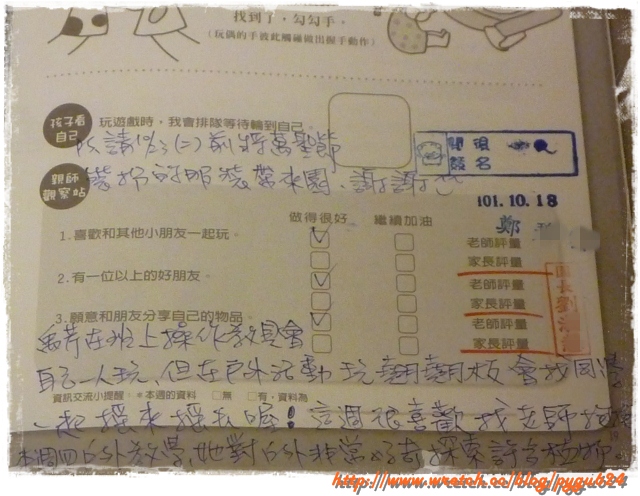 找到了，勾勾手。
(玩偶的手彼此觸碰做出握手動作)
孩子看自己
玩遊戲時，我會排隊等待輪到自己
請10/23(二)前將萬聖節
裝扮的服裝帶來園、謝謝您
閱後簽名
親師觀察站
101.10.18
做得很好 繼續加油
鄭
1.喜歡和其他小朋友一起玩。
老師評量
家長評量
2.有一位以上的好朋友。
老師評量
家長評量
3.願意和朋友分享自己的物品。
老師評量
家長評量
園長劉
在班上操作教具會
自己一人玩，但在戶外活動玩翹翹板會找同學
資訊交流小提醒：*本週的資料 □無 □有，資料為
一起搖來搖去喔！這週很喜歡找老師
本週四戶外教學，她對戶外非常好奇探索許多植物。
http://www.wretch.cc/blog/pygub24